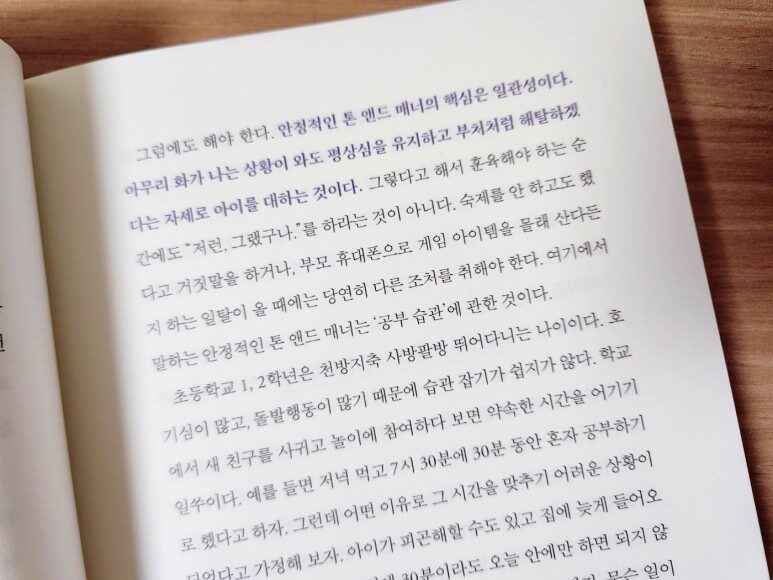 그럼에도 해야 한다. 안정적인 톤 앤드 매너의 핵심은 일관성이다.
아무리 화가 나는 상황이 와도 평상심을 유지하고 부처처럼 해탈하겠
다는 자세로 아이를 대하는 것이다. 그렇다고 해서 훈육해야 하는 순
간에도 “저런, 그랬구나.”를 하라는 것이 아니다. 숙제를 안 하고도 했
다고 거짓말을 하거나, 부모 휴대폰으로 게임 아이템을 몰래 산다든
지 하는 일탈이 올 때에는 당연히 다른 조처를 취해야 한다. 여기에서
말하는 안정적인 톤 앤드 매너는 ‘공부 습관’에 관한 것이다.
초등학교 1, 2학년은 천방지축 사방팔방 뛰어다니는 나이이다. 호
기심이 많고, 돌발행동이 많기 때문에 습관 잡기가 쉽지가 않다. 학교
에서 새 친구를 사귀고 놀이에 참여하다 보면 약속한 시간을 어기기
일쑤이다. 예를 들면 저녁 먹고 7시 30분에 30분 동안 혼자 공부하기
로 했다고 하자. 그런데 어떤 이유로 그 시간을 맞추기 어려운 상황이
되었다고 가정해 보자. 아이가 피곤해할 수도 있고 집에 늦게 들어오
30분이라도 오늘 안에만 하면 되지 않
무슨 일이